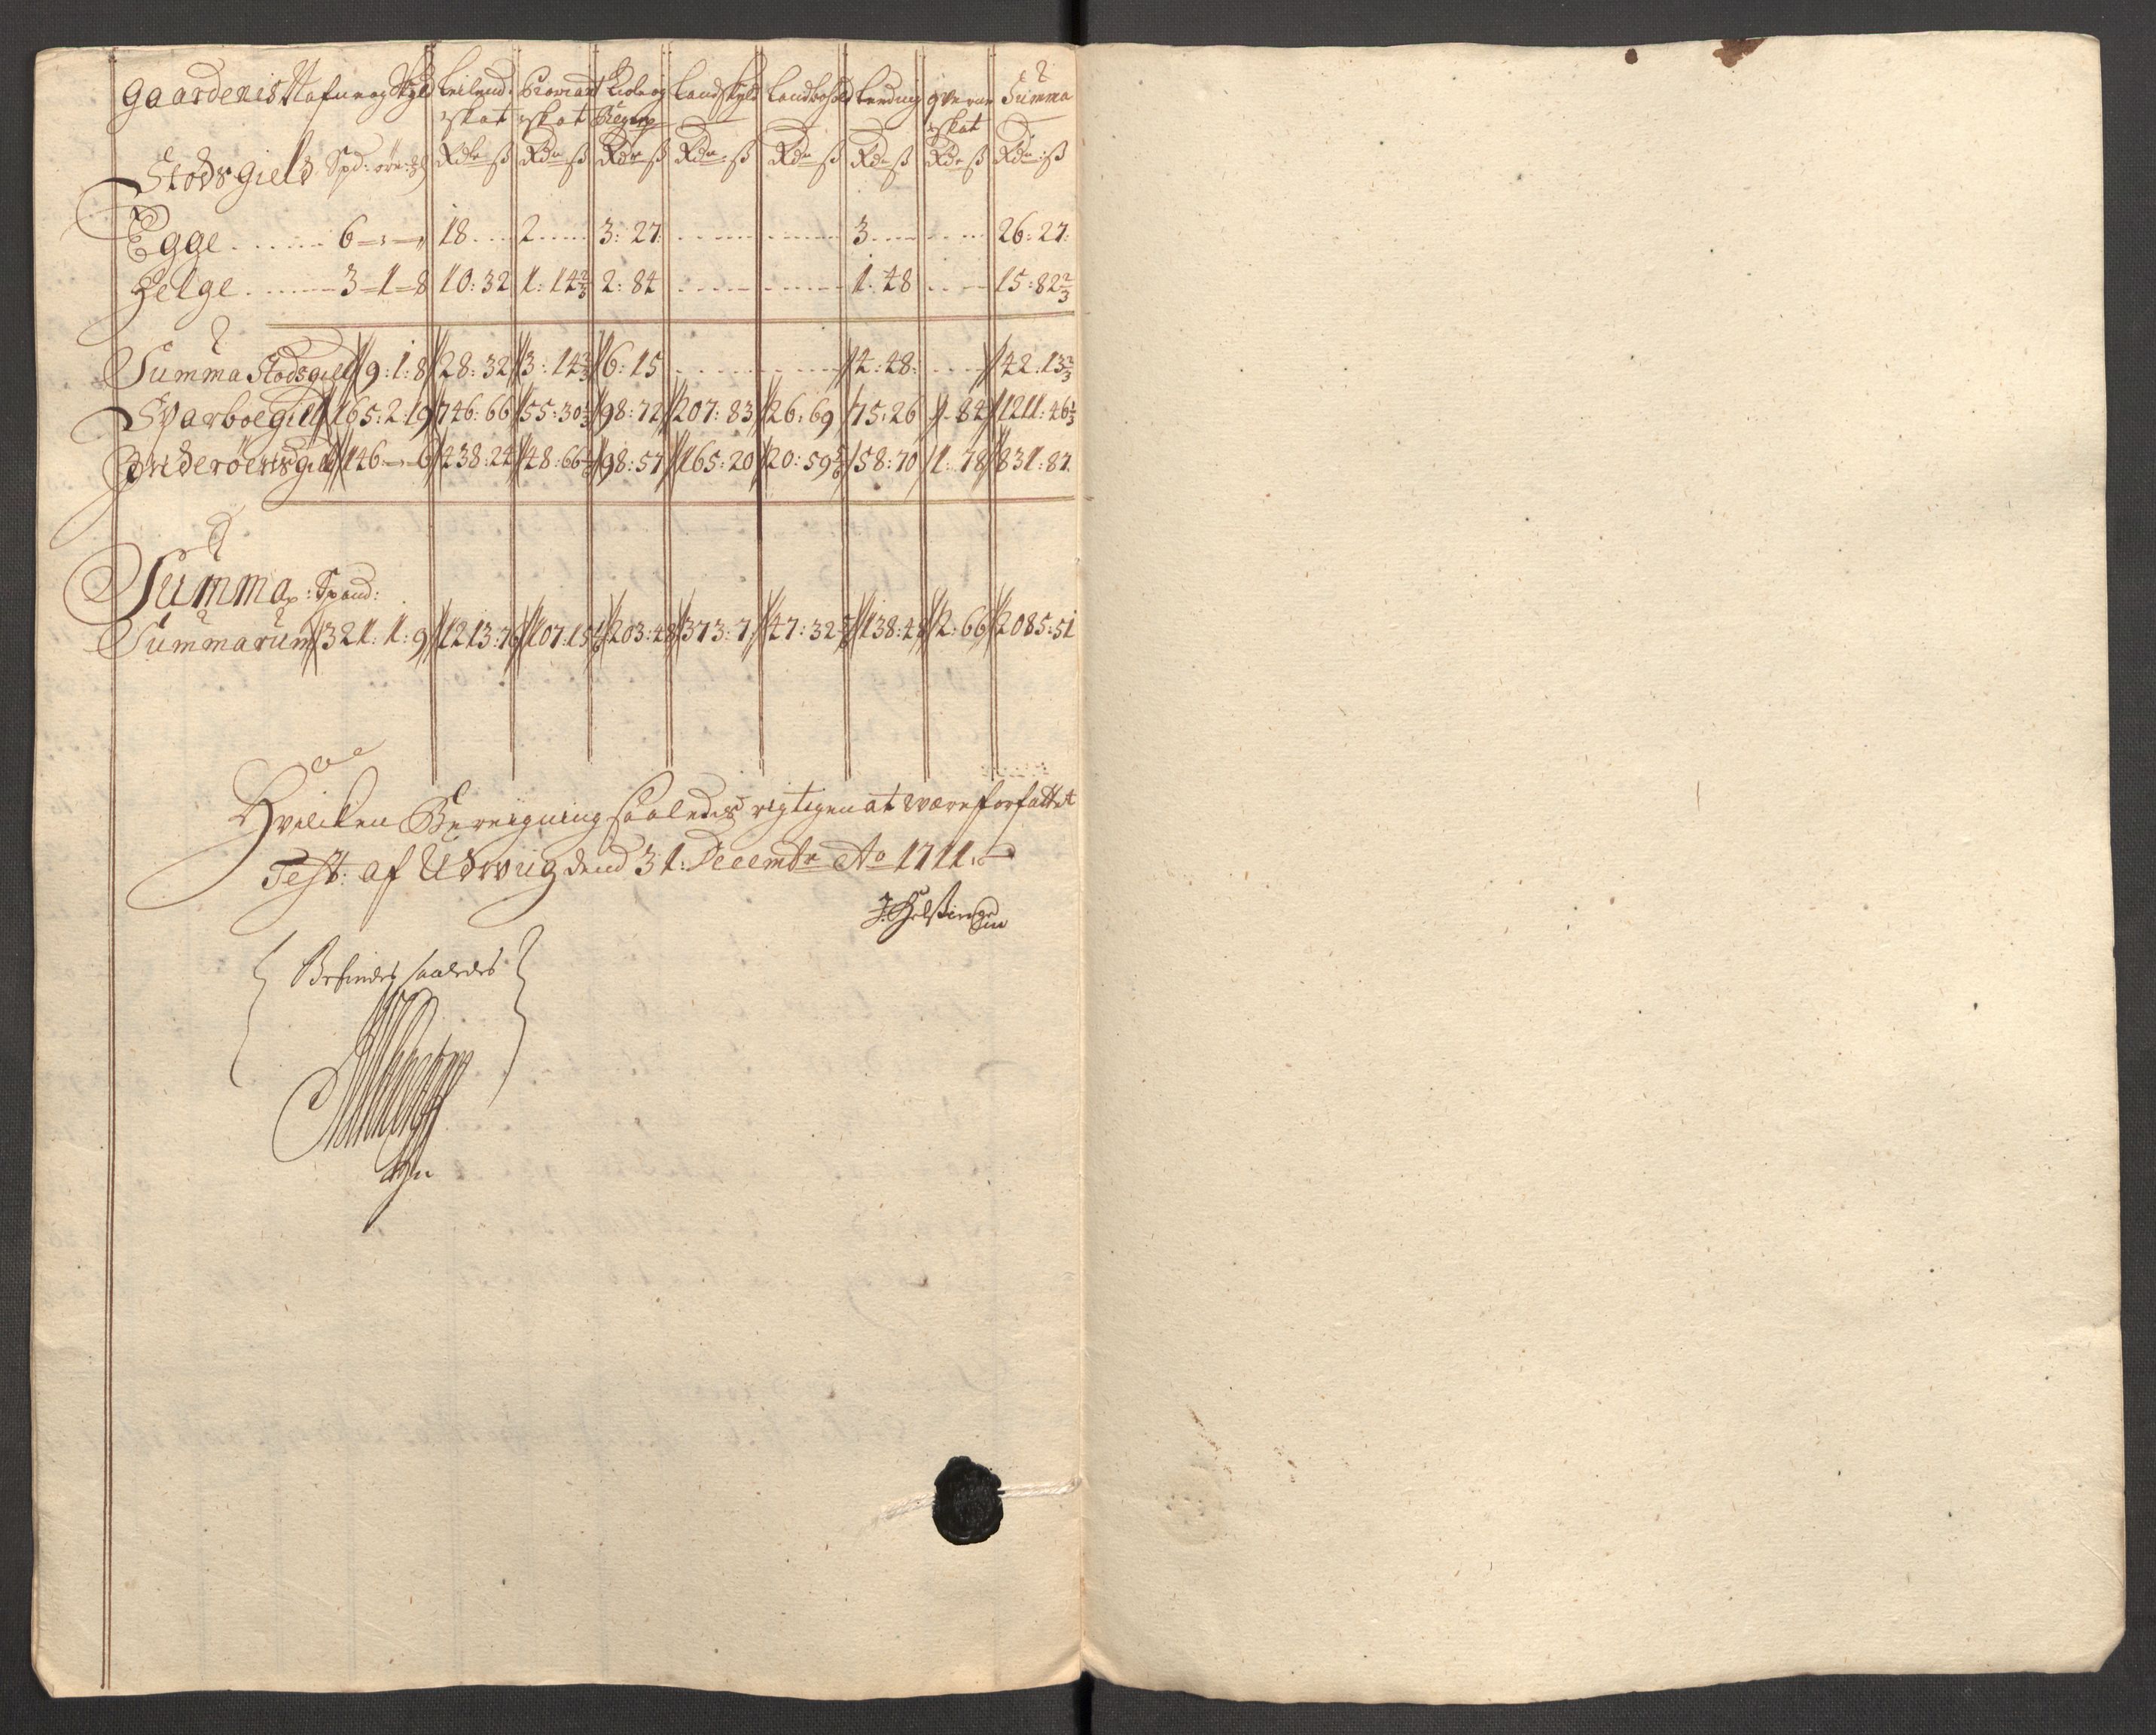 Gaardenis Nafn og Skyld Leilend: Proviant Kiole og Landskyld Landbohold Leeding qværne Summa
skat skat skat
Stods gield Spd: øre: Rdr ß Rdr ß Rdr ß Rdr ß Rdr ß Rdr ß Rdr ß Rdr: ß
Egge . . . . . 6 - - 18 . . . 2 . . . 3: 27 . . . . . . 3 . . . . . . 26: 27:
Helge . . . . . 3 - 1 - 8 10: 32 1: 14 2/3 2: 84 . . . . . . 1: 48 . . . 15: 82 2/3
Summa Stodsgield 9: 1: 8 28: 32 3: 14 2/3 6: 15 . . . . . . 4: 48: . . . 42: 13 2/3
Sparboe gield 165: 2: 19 746: 66 55: 30 1/3 98: 72 207: 83 26: 69 75: 26 1: 84 1211: 46 1/3
Inderøens gield 146 - 6 438: 24 48: 66 98: 57 165: 20 20: 59 58: 70 1: 78 831: 87
Summa: Spand:
Summarum 321: 1: 9 1213: 76 107: 15 203: 48 373: 7 47: 32 138: 48 2: 66 2085: 51
Hvilcken Beregning saaledes rigtigen at være forfattet
Test: af Udvug dend 31: Decembr Ao 1711.
J. Helsing
Befindes saaledes